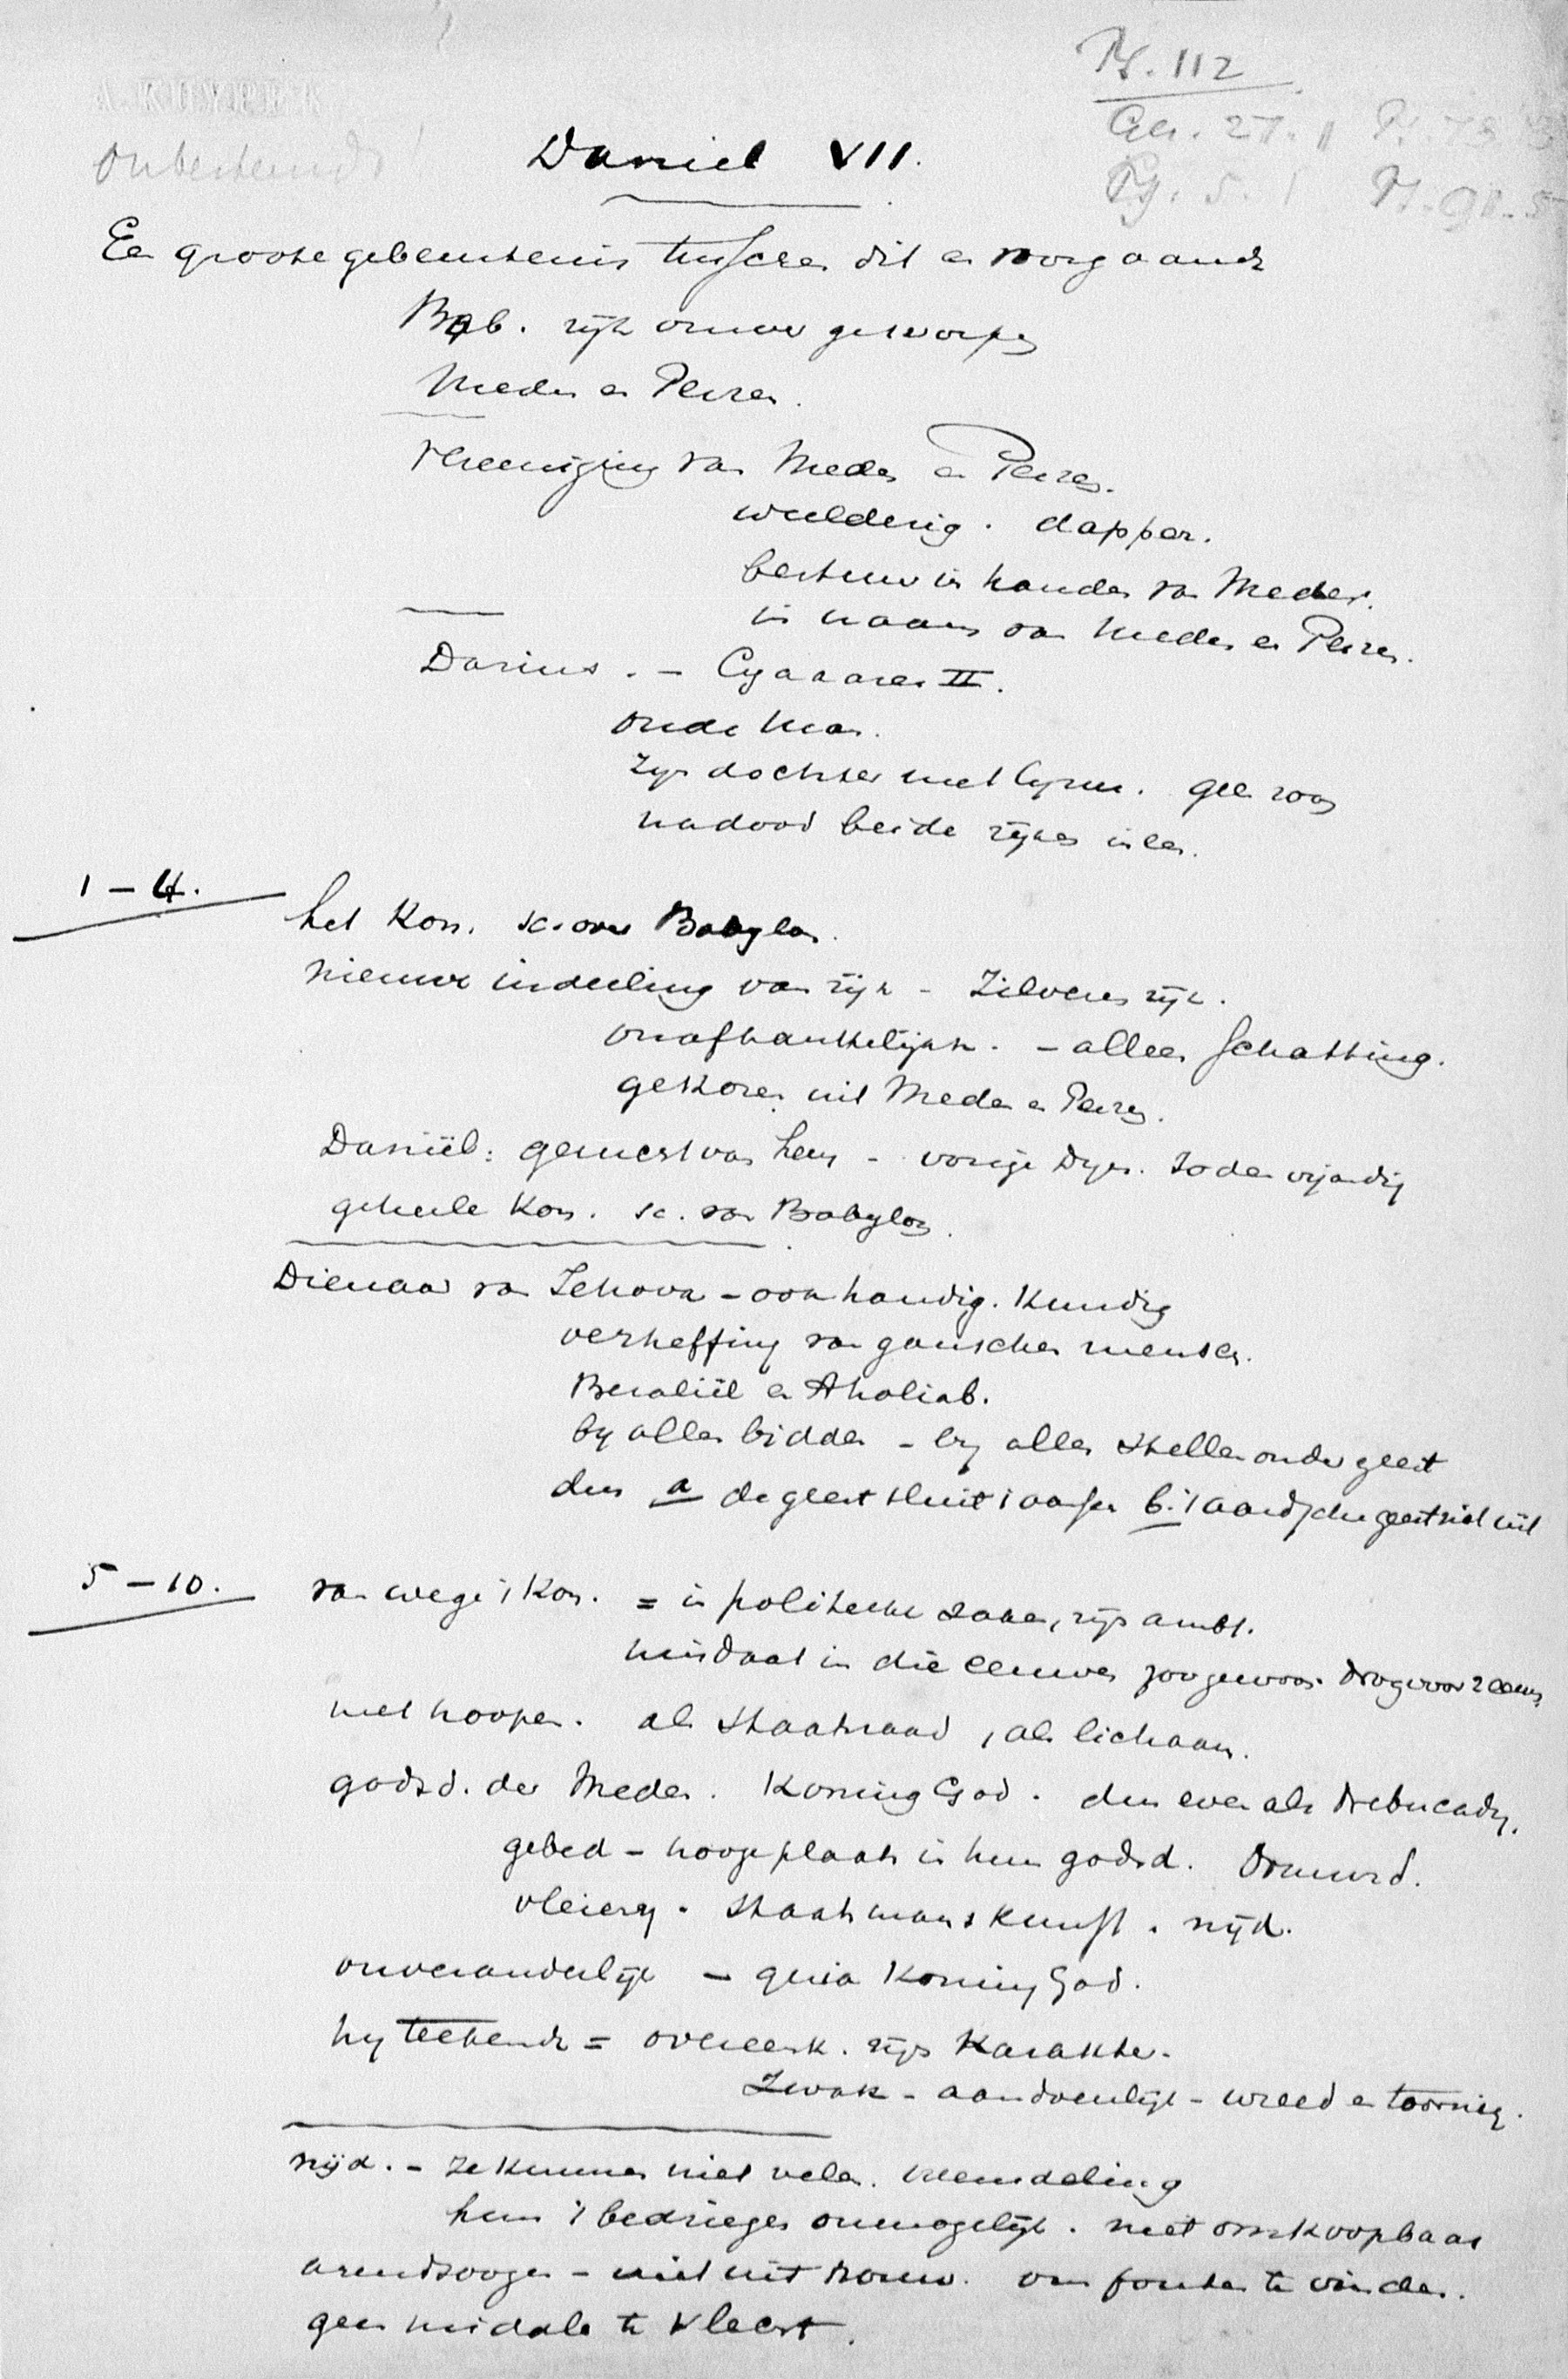 Ps. 112
A. KUYPER
Ges. 27. 1 Ps. 73
Onbestemd
Daniel VII.
Ps. 5. 1 Ps. 91. 5
Een groote gebeurtenis tusschen dit en voorgaande
Bab. rijk omver geworpen
Meden en Perzen.
Vereeniging van Meden en Perzen.
weelderig. dapper.
bestuur in handen van Meder.
in naam van Meden en Perzen.
Darius. – Cyaxares II.
oude man.
Zijn dochter met Cyrus. geen zoon
na dood beide rijken in een.
1 – 4.
het Kon. sc. over Babylon.
nieuwe indeeling van rijk – Zilveren rijk.
onafhankelijker. – alleen schatting.
gekozen uit Meden en Perzen.
Daniël: gemest van hem – vorige Dyn. Joden vijandig
geheele Kon. sc. van Babylon.
Dienaar van Jehova – ook handig. Kundig
verheffing van ganschen mensch.
Bezaliël en Aholiab.
by alles bidden – by alles stellen onder geest
dus a de geest sluit 't aardsche b. 't aardsche geest niet uit
5 – 10.
van wege 't Kon. = in politieke zaken, zijn ambt.
misdaad in die eeuwen zoo gewoon. nog voor 2 eeuw
met hoopen. als Staatsraad, als lichaam.
godsd. der Meden. Koning God. dus even als Nebucadn.
gebed – hooge plaats in hun godsd. Ormuzd.
vleiery. Staatsmanskunst. nijd.
onveranderlijk – quia Koning God.
hy teekende = overeenk. zijn Karakter.
Zwak – aandoenlijk – wreed en toornig.
nijd. – ze kunnen niet velen. vreemdeling
hem 't bedriegen onmogelijk. niet omkoopbaar
arendsoogen – niet uit trouw. om fouten te vinden.
geen middel te slecht.